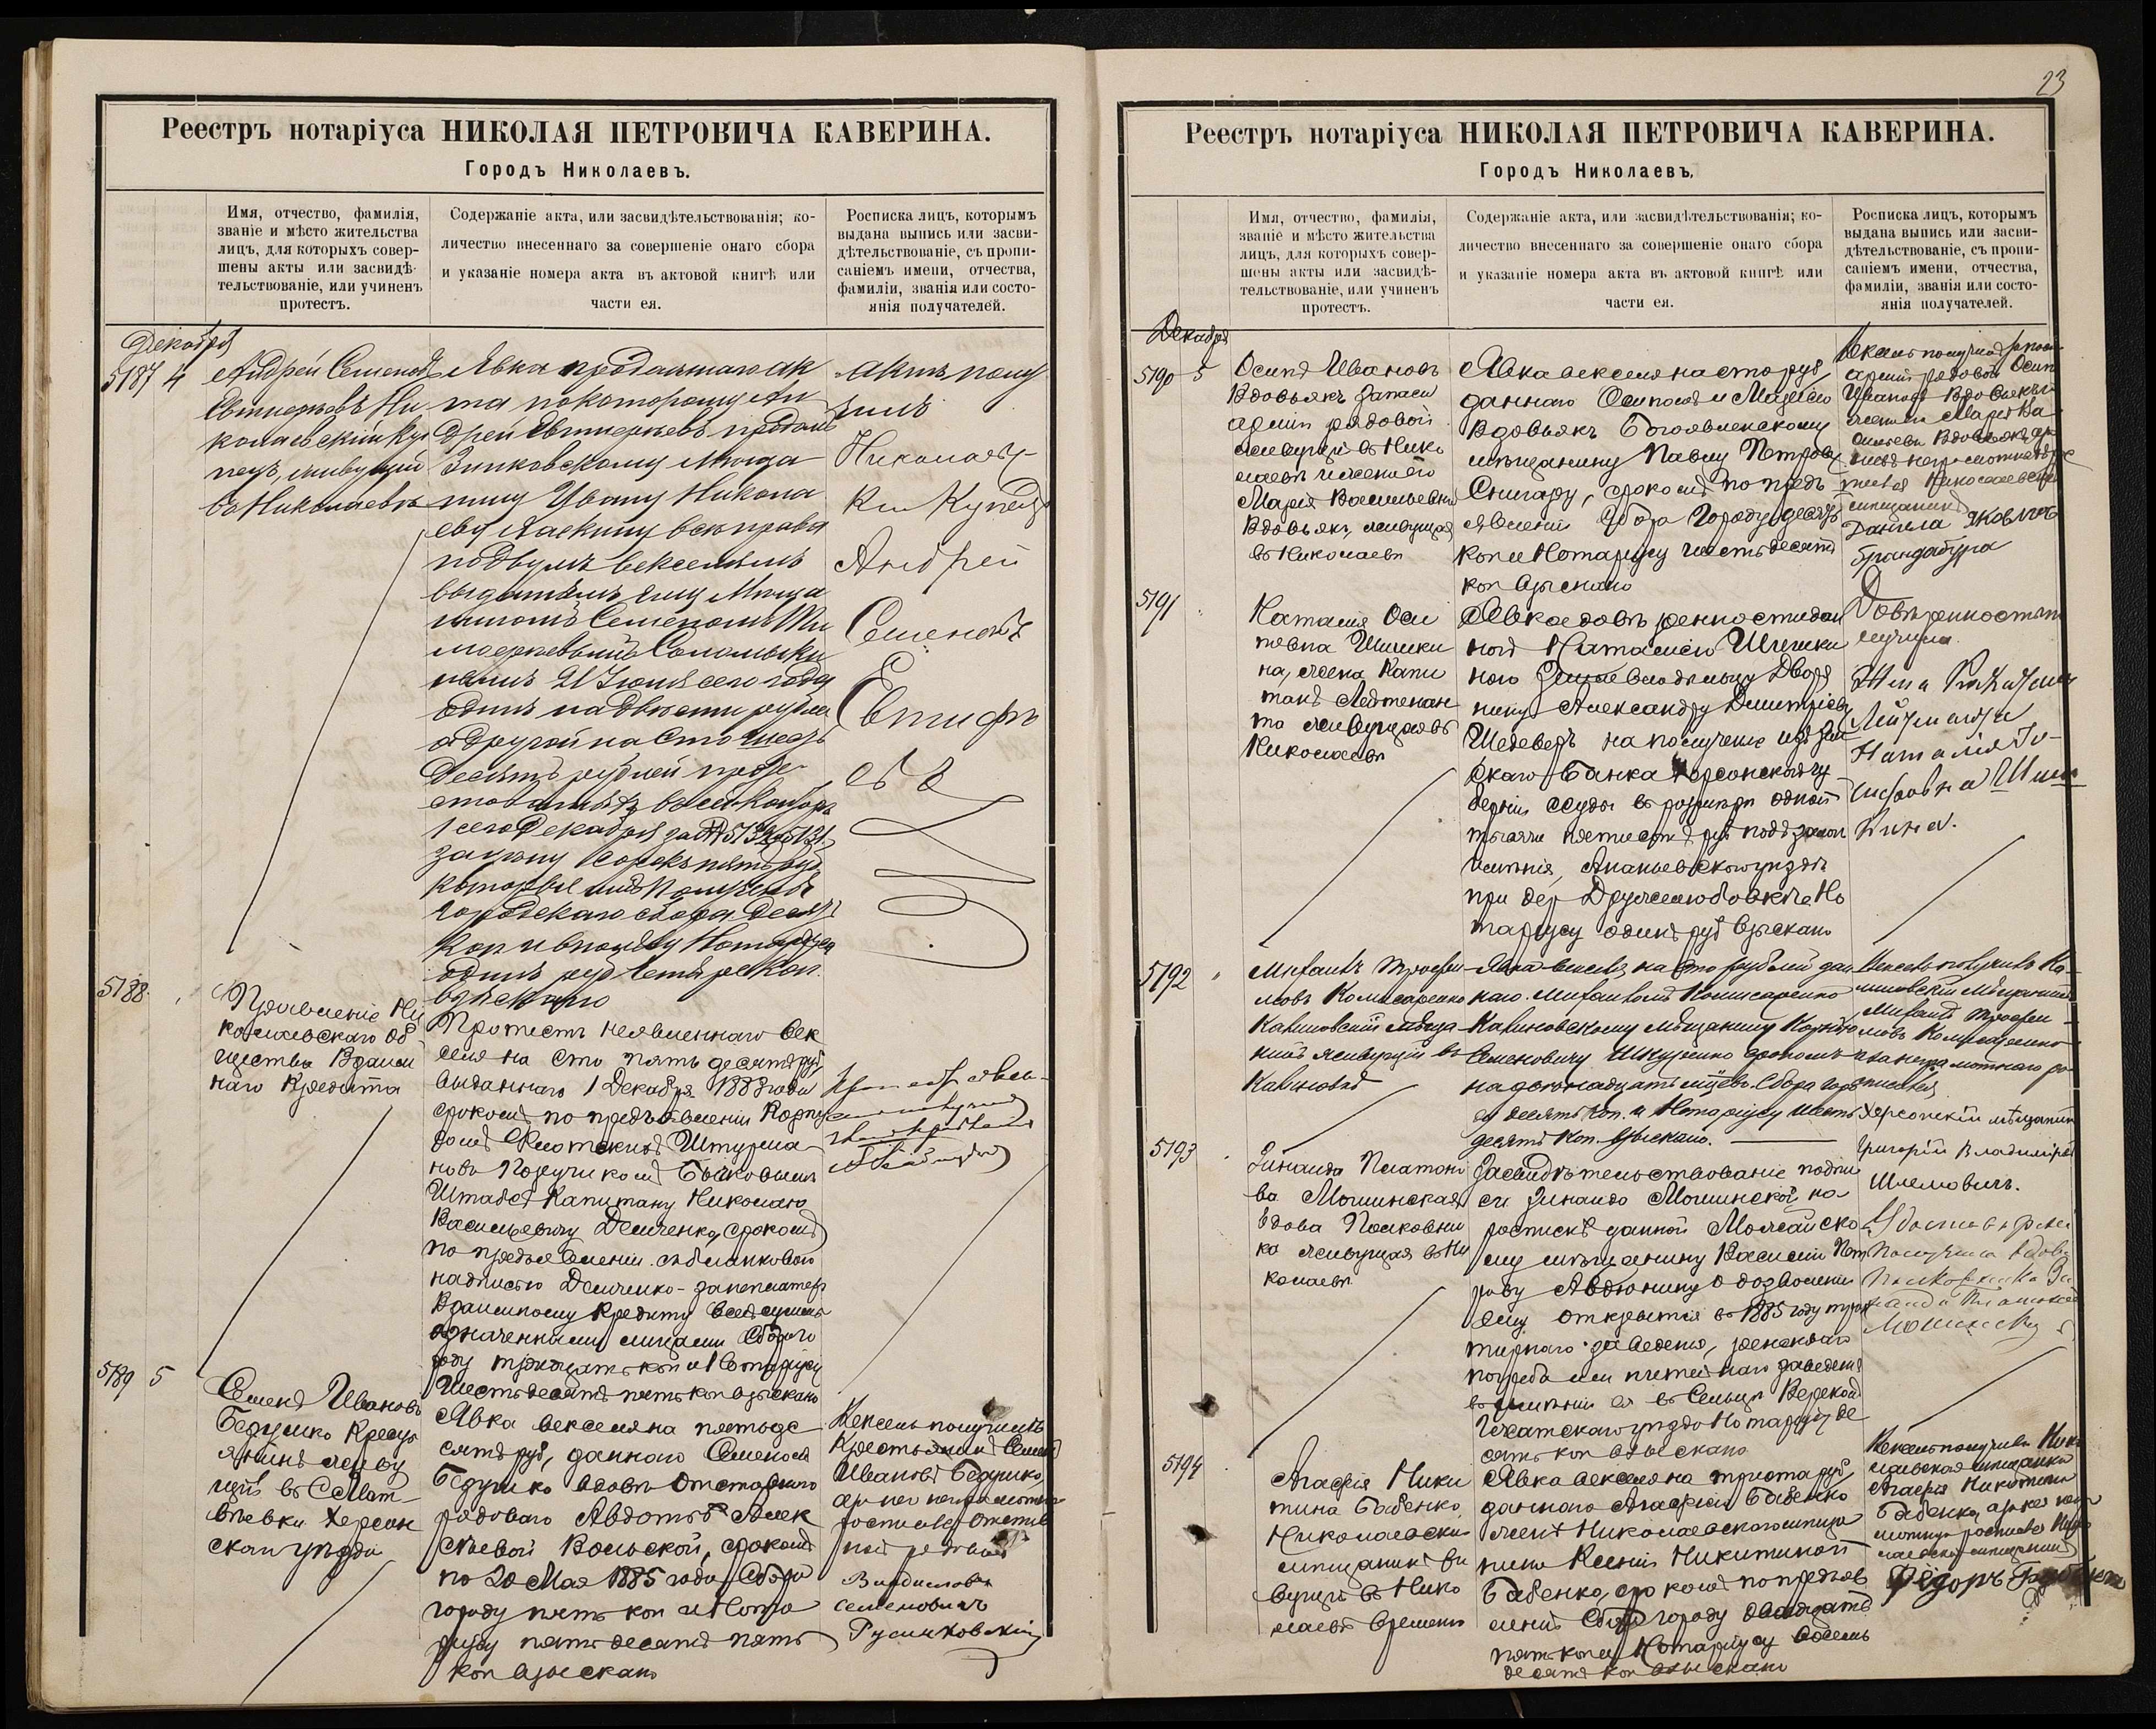 Реестръ нотаріуса НИКОЛАЯ ПЕТРОВИЧА КАВЕРИНА.
Городъ Николаевъ.
Имя, отчество, фамилія,
званіе и мѣсто жительства
лицъ, для которыхъ совер-
шены акты или засвидѣ-
тельствованіе, или учиненъ
протестъ.
Содержаніе акта, или засвидѣтельствованія; ко-
личество внесеннаго за совершеніе онаго сбора
и указаніе номера акта въ актовой книгѣ или
части ея.
Росписка лицъ, которымъ
выдана выпись или засви-
дѣтельствованіе, съ пропи-
саніемъ имени, отчества,
фамиліи, званія или состо-
янія получателей.
Декабря
5187 4
Андрей Семеновъ
Евтиферьевъ Ни
колаевскій Ку
пецъ, живущій
въ Николаевѣ
Явка продажнаго ак
та по которому Ан
дрей Евтиферьевъ продалъ
Зиньковскому мѣща
нину Ивану Никола
еву все права
по двумъ векселямъ
выданнымъ ему мѣща
ниномъ Семеномъ
21 Іюня сего года
одинъ на двѣсти рублей
а другой на сто шесть
десятъ рублей
1 сего Декабря за №№ 5132 и 5131
за сорокъ пять руб
которые имъ получены
городскаго сбора десять
коп и въ пользу Нотаріуса
одинъ руб четыре коп
взыскано
Актъ полу
чилъ
Николаев-
скій Купецъ
Андрей
Семеновъ
Евтифѣр
евъ
5188
Правленіе Ни
колаевскаго Об
щества Взаим
наго Кредита
Протестъ неявленнаго век
селя на сто пять десятъ руб
выданнаго 1 Декабря 1883 года
срокомъ по предъявленіи Корпу
сомъ Флотскихъ Штурма
новъ Поручикомъ Быковымъ
Штабсъ Капитану Николаю
Васильевичу Демченко, срокомъ
по предъявленіи съ бланковою
надписью Демченко - за неплатежъ
Взаимному Кредиту всей суммы
означенными лицами Сбора го
роду тридцать коп и Нотаріусу
шестьдесятъ пять коп взыскано
5189 5
Семенъ Ивановъ
Бедушко Кресть
янинъ живу
щій въ С Мат
вѣевки Херсон
скаго уѣзда
Явка векселя на пятьде
сятъ руб, даннаго Семеномъ
Бедушко вдовѣ Отставного
рядоваго Авдотьѣ Алек
сѣевой Вольской, срокомъ
по 20 Мая 1885 года, Сбора
городу пять коп и Нота
ріусу пять десятъ пять
коп взыскано
Вексель получилъ
Крестьянинъ Семенъ
Ивановъ Бедушко,
а за него неграмотнаго
росписался Отстав
ной рядовой
Владиславъ
Семеновичъ
Русинковскій
23
Реестръ нотаріуса НИКОЛАЯ ПЕТРОВИЧА КАВЕРИНА.
Городъ Николаевъ.
Имя, отчество, фамилія,
званіе и мѣсто жительства
лицъ, для которыхъ совер-
шены акты или засвидѣ-
тельствованіе, или учиненъ
протестъ.
Содержаніе акта, или засвидѣтельствованія; ко-
личество внесеннаго за совершеніе онаго сбора
и указаніе номера акта въ актовой книгѣ или
части ея.
Росписка лицъ, которымъ
выдана выпись или засви-
дѣтельствованіе, съ пропи-
саніемъ имени, отчества,
фамиліи, званія или состо-
янія получателей.
Декабря
5190 5
Осипъ Ивановъ
Вдовьякъ Запаса
арміи рядовой
живущій въ Нико
лаевѣ и жена его
Марія Васильевна
Вдовьякъ, живущая
въ Николаевѣ
Явка векселя на сто руб
даннаго Осипомъ и Маріею
Вдовьякъ Богоявленскому
мѣщанину Павлу Петрову
Снигару, срокомъ по предъ
явленіи Сбора городу десять
коп и Нотаріусу шестьдесятъ
коп взыскано
Вексель получилъ Запаса
арміи рядовой Осипъ
Ивановъ Вдовьякъ и
жена его Марія Ва
сильева Вдовьякъ, а за
нихъ неграмотныхъ рос
писался Николаевскій
мѣщанинъ
Данила Яковличъ
Брандабура
5191
Наталія Оси
повна Шишки
на, жена Капи
танъ Лейтенан
та живущая въ
Николаевѣ
Явка довѣренности дан
ной Наталіею Шишки
ною Землевладѣльцу Дворя
нину Александру Дмитріеву
Шедеверъ на полученіе изъ Зем
скаго Банка Херсонской гу
берніи ссуды въ размѣрѣ одной
тысячи пятисотъ руб подъ залогъ
имѣнія, Ананьевскаго уѣзда
при дер Дружелюбовкѣ Но
таріусу одинъ руб взыскано
Довѣренность по
лучила
Жена Кап
Лейтенанта
Наталія Іо-
сифовна Шиш
кина.
5192
Михаилъ Трофи
мовъ Комисаренко
Калиновскій мѣща
нинъ живущій въ
Калиновкѣ
Явка векселя на сто рублей дан
наго Михаиломъ Комисаренко
Калиновскому мѣщанину Корнѣю
Семеновичу Шкуренко срокомъ
на двѣнадцать мѣсяцевъ. Сбора горо
ду десять коп. и Нотаріусу шесть
десятъ коп. взыскано.
Вексель получилъ Ка-
линовскій Мѣщанинъ
Михаилъ Трофи-
мовъ Комисаренко
а за неграмотнаго рос
писался
Херсонскій мѣщанин
Григорій Владиміровъ
Шлемовичъ.
5193
Зинаида Платоно
ва Мошинская
вдова Полковни
ка живущая въ Ни
колаевѣ
Засвидѣтельствованіе подпи
си Зинаиды Мошинской на
роспискѣ данной Можайско
му мѣщанину Василію Пет
рову Авдюнину о дозволеніи
ему открытія въ 1885 году трак
тирнаго заведенія, ренсковаго
погреба или питейнаго заведенія
въ имѣніи ея въ Сельцѣ
Гжатскаго уѣзда Нотаріусу де
сять коп взыскано
Получила вдова
Полковника Зи
наида Платонова
Мошинская
5194
Агафія Ники
тина Бабенко,
Николаевская
мѣщанка жи
вущая въ Нико
лаевѣ временно
Явка векселя на триста руб
даннаго Агафіею Бабенко
женѣ Николаевскаго мѣща
нина Ксеніи Никитиной
Бабенко, срокомъ по предъяв
леніи Сбора городу двадцать
пять коп и Нотаріусу восемь
десятъ коп взыскано
Вексель получила Нико
лаевская мѣщанка
Агафія Никитина
Бабенко, а за нее негра
мотную росписался Нико
лаевскій мѣщанинъ
Фёдоръ